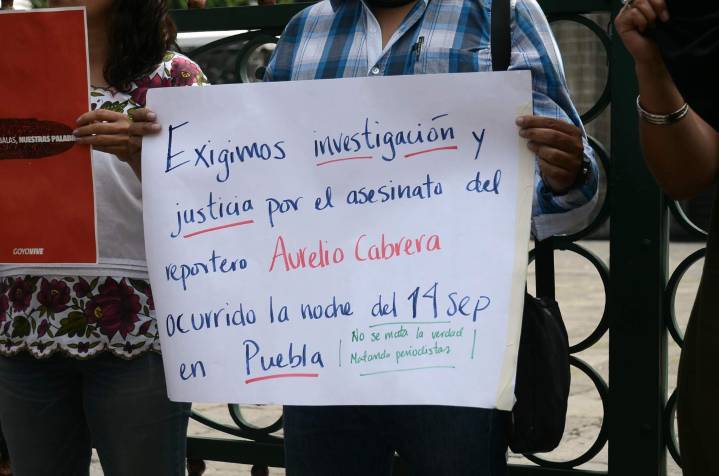 BALAS, NUESTRAS PALABR
GOYOVIVE
Exigimos investigación y
justicia por el asesinato del
reportero Aurelio Cabrera
ocurrido la noche del 14 sep
en Puebla
No se mata la verdad
Matando periodistas